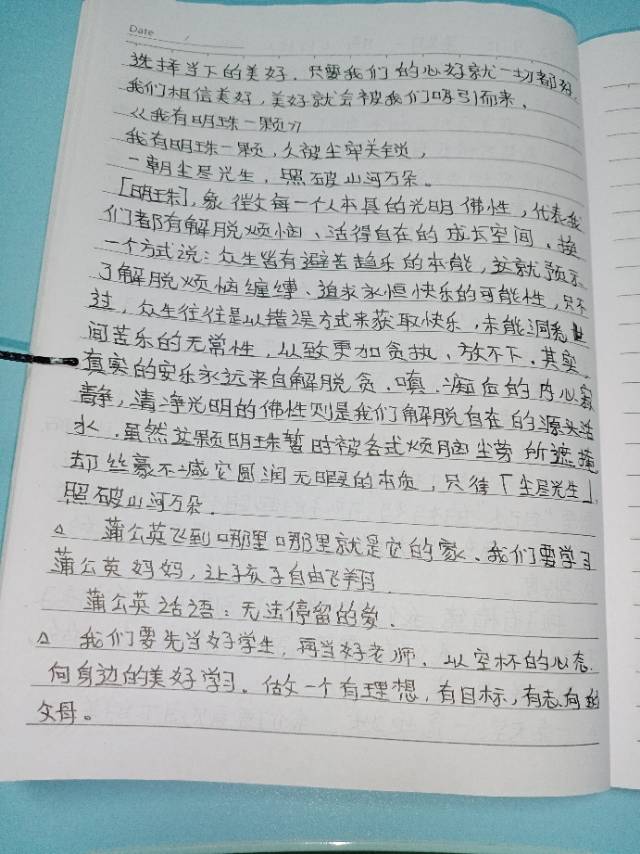 Date
选择当下的美好。只要我们的心好就一切都好。
我们相信美好,美好就会被我们吸引而来。
《我有明珠一颗》
我有明珠一颗,久被尘牢关锁,
一朝尘尽光生,照破山河万朵。
[明珠],象徵每一个人本具的光明佛性,代表我
们都有解脱烦恼、活得自在的成长空间、换
一个方式说:众生皆有避苦趋乐的本能,这就预示
了解脱烦恼缠缚、追求永恒快乐的可能性,只不
过,众生往往是以错误方式来获取快乐,未能洞悉世
间苦乐的无常性,以致更加贪执、放不下。其实
真实的安乐永远来自解脱贪、嗔、痴后的内心寂
静,清净光明的佛性则是我们解脱自在的源头活
水。虽然这颗明珠暂时被各式烦恼尘劳所遮掩
却丝毫不减它圆润无暇的本质,只待「尘尽光生」,
照破山河万朵。
△ 蒲公英飞到哪里哪里就是它的家。我们要学习
蒲公英妈妈,让孩子自由飞翔
蒲公英话语:无法停留的爱.
△ 我们要先当好学生,再当好老师。以空杯的心态.
向身边的美好学习。做一个有理想,有目标,有志向的
父母。